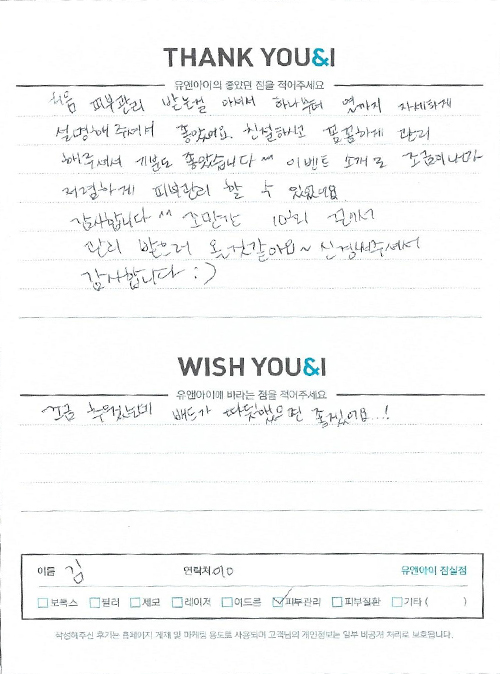 THANK YOU&I
유앤아이의 좋았던 점을 적어주세요
처음 피부관리 받는걸 아셔서 하나부터 열까지 자세하게
설명해주셔서 좋았어요. 친절하시고 꼼꼼하게 관리
해주셔서 기분도 좋았습니다~ 이벤트 소개로 조금이나마
저렴하게 피부관리 할 수 있었어요
감사합니다 ^^ 조만간 10회 끊어서
관리 받으러 올것같아요~ 신경써주셔서
감사합니다 :)
WISH YOU&I
유앤아이에 바라는 점을 적어주세요
조금 추웠는데 베드가 따뜻했으면 좋겠어요..!
이름 김 연락처 010 유앤아이 잠실점
보톡스 필러 제모 레이저 여드름 피부관리 피부질환 기타 ( )
작성해주신 후기는 홈페이지 게재 및 마케팅 용도로 사용되며 고객님의 개인정보는 일부 비공개 처리로 보호됩니다.